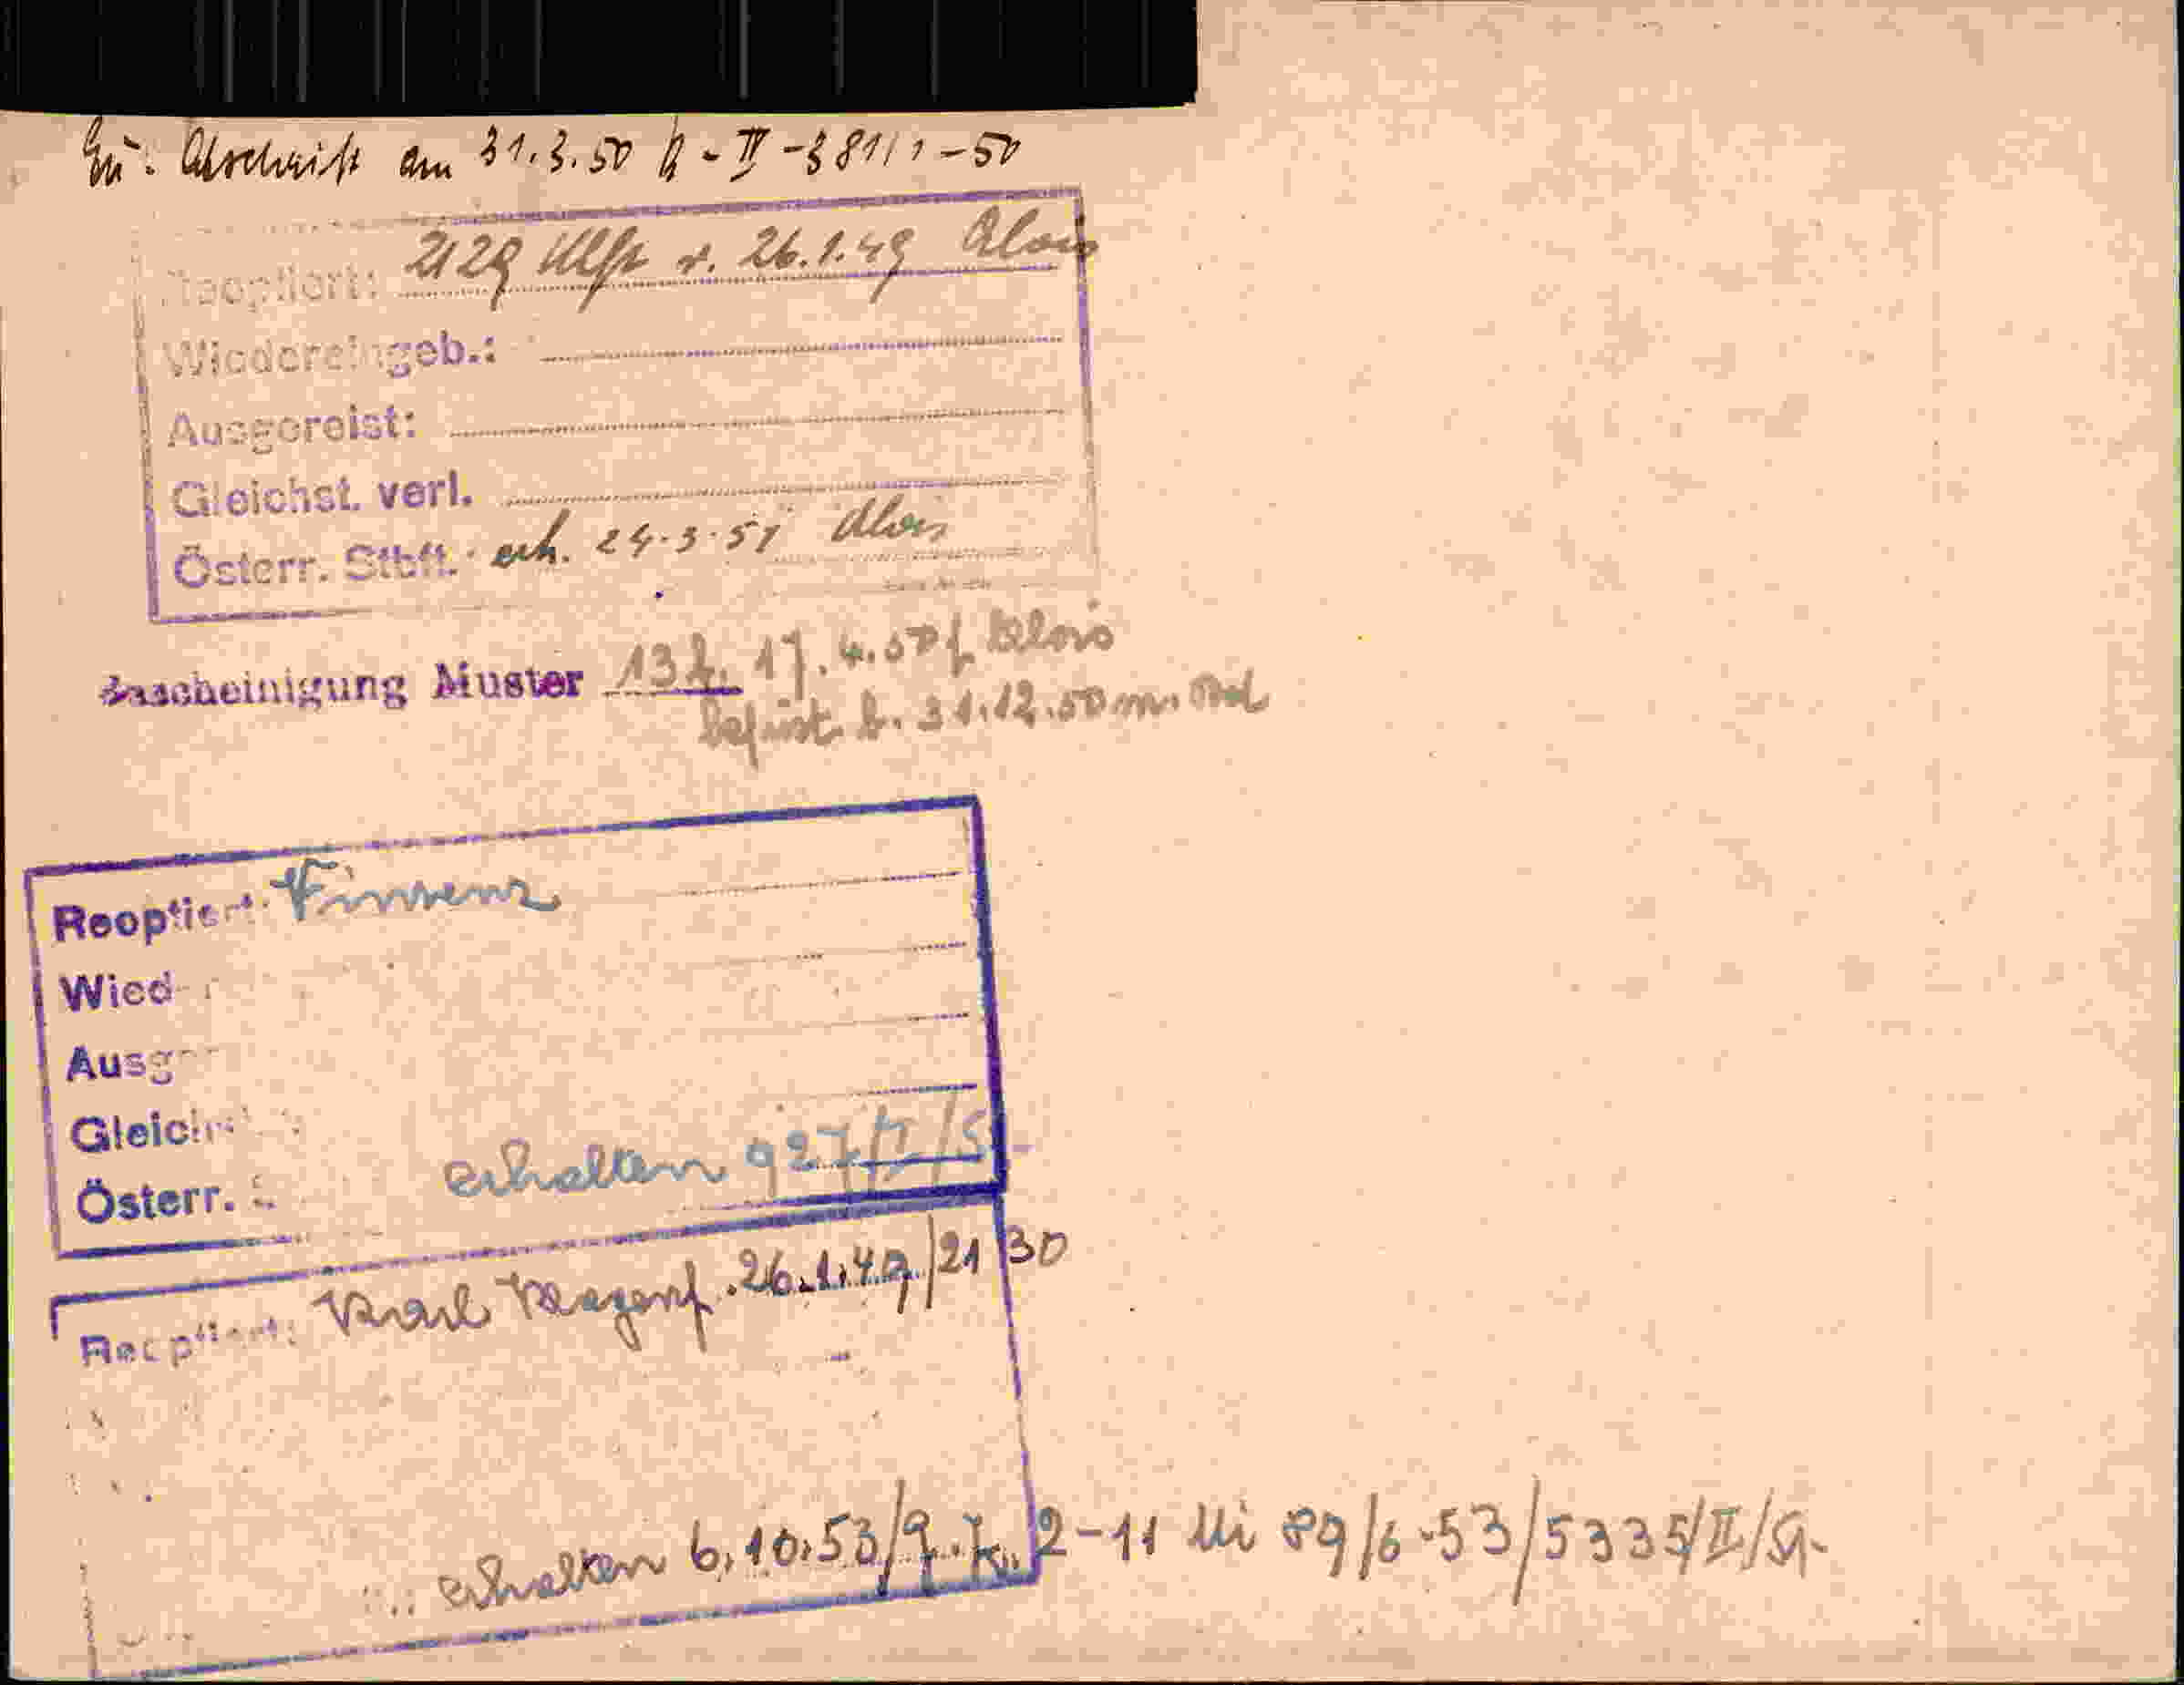 Abschrift am 31.3.50 - II - 381/1 - 50
Reoptiert: 2129 Klft v. 26.1.49 Alois
Wiedereingeb.:
Ausgereist:
Gleichst. verl.
Österr. Stbft. erh. 24.3.51 Alois
Bescheinigung Muster 13 f. 17.4.50 f. Alois
befrist. b. 31.12.50
Reoptiert: Vinzenz
Wied
Ausg
Gleich
Österr. erhalten 927/I/5
Reoptiert: Karl Klagenf. 26.1.49/2130
erhalten 6.10.53/9.Z. 2-11 Mi 89/6-53/5335/II/